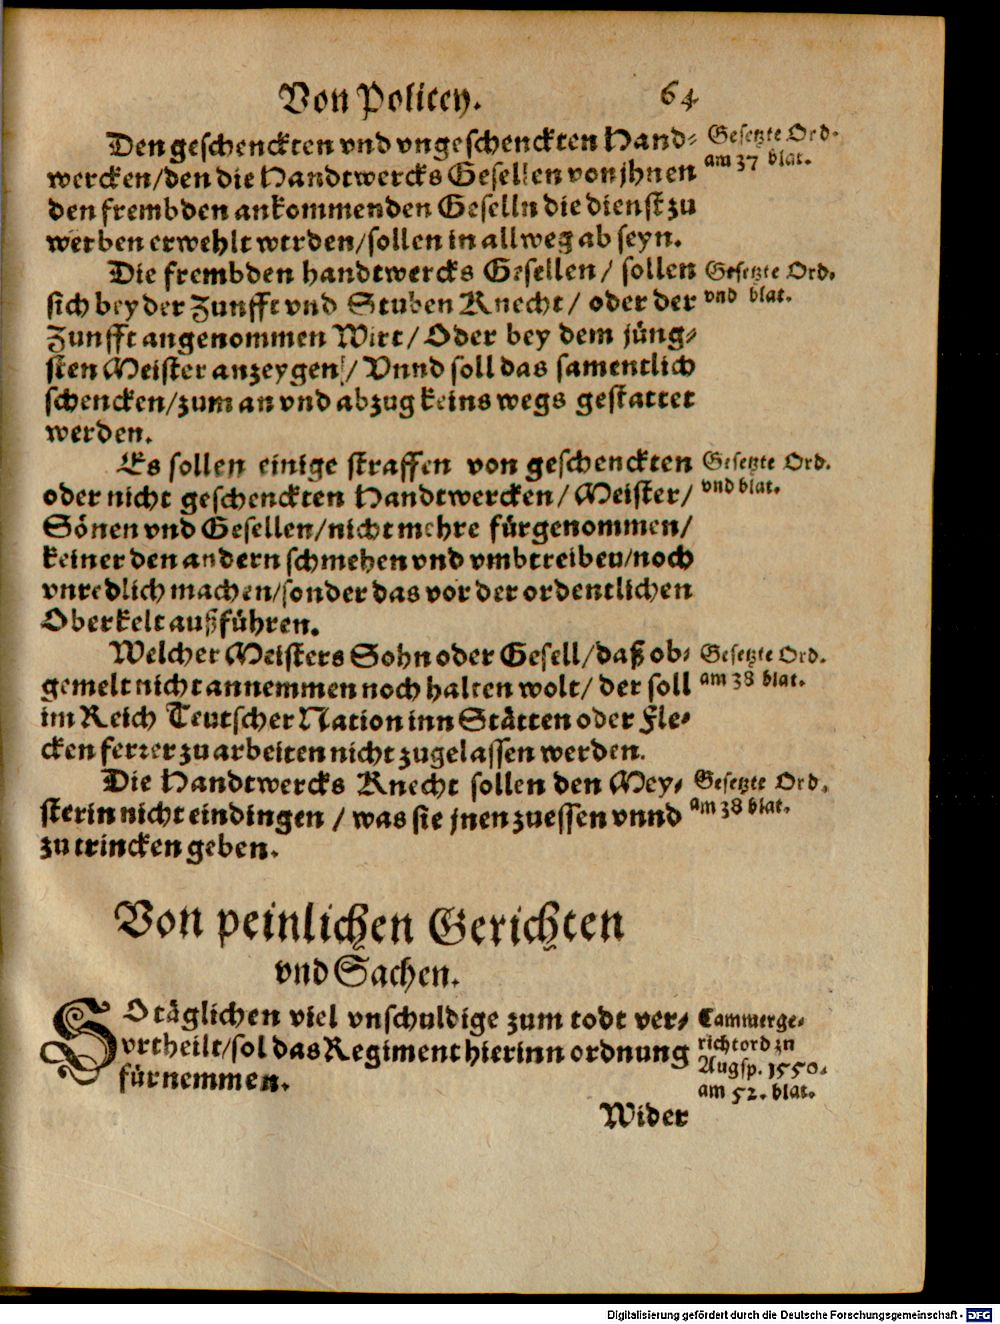 Von Policey. 64
Den geschenckten vnd vngeschenckten Hand-
wercken/den die Handtwercks Gesellen von jhnen
den frembden ankommenden Geselln die dienst zu
werben erwehlt werden/sollen in allweg ab seyn.
Gesetzte Ord.
am 37 blat.
Die frembden handtwercks Gesellen/ sollen
sich bey der Zunfft vnd Stuben Knecht/ oder der
Zunfft angenommen Wirt/ Oder bey dem jüng-
sten Meister anzeygen/ Vnnd soll das samentlich
schencken/zum an vnd abzug keins wegs gestattet
werden.
Gesetzte Ord.
vnd blat.
Es sollen einige straffen von geschenckten
oder nicht geschenckten Handtwercken/ Meister/
Sönen vnd Gesellen/nicht mehre fürgenommen/
keiner den andern schmehen vnd vmbtreiben/noch
vnredlich machen/sonder das vor der ordentlichen
Oberkeit außführen.
Gesetzte Ord.
vnd blat.
Welcher Meisters Sohn oder Gesell/daß ob-
gemelt nicht annemmen noch halten wolt/ der soll
im Reich Teutscher Nation inn Stätten oder Fle-
cken ferrer zu arbeiten nicht zugelassen werden.
Gesetzte Ord.
am 38 blat.
Die Handtwercks Knecht sollen den Mey-
sterin nicht eindingen / was sie jnen zuessen vnnd
zu trincken geben.
Gesetzte Ord.
am 38 blat.
Von peinlichen Gerichten
vnd Sachen.
SO täglichen viel vnschuldige zum todt ver-
vrtheilt/sol das Regiment hierinn ordnung
fürnemmen.
Cammerge-
richtord zu
Augsp. 1550.
am 52. blat.
Wider
Digitalisierung gefördert durch die Deutsche Forschungsgemeinschaft - DFG